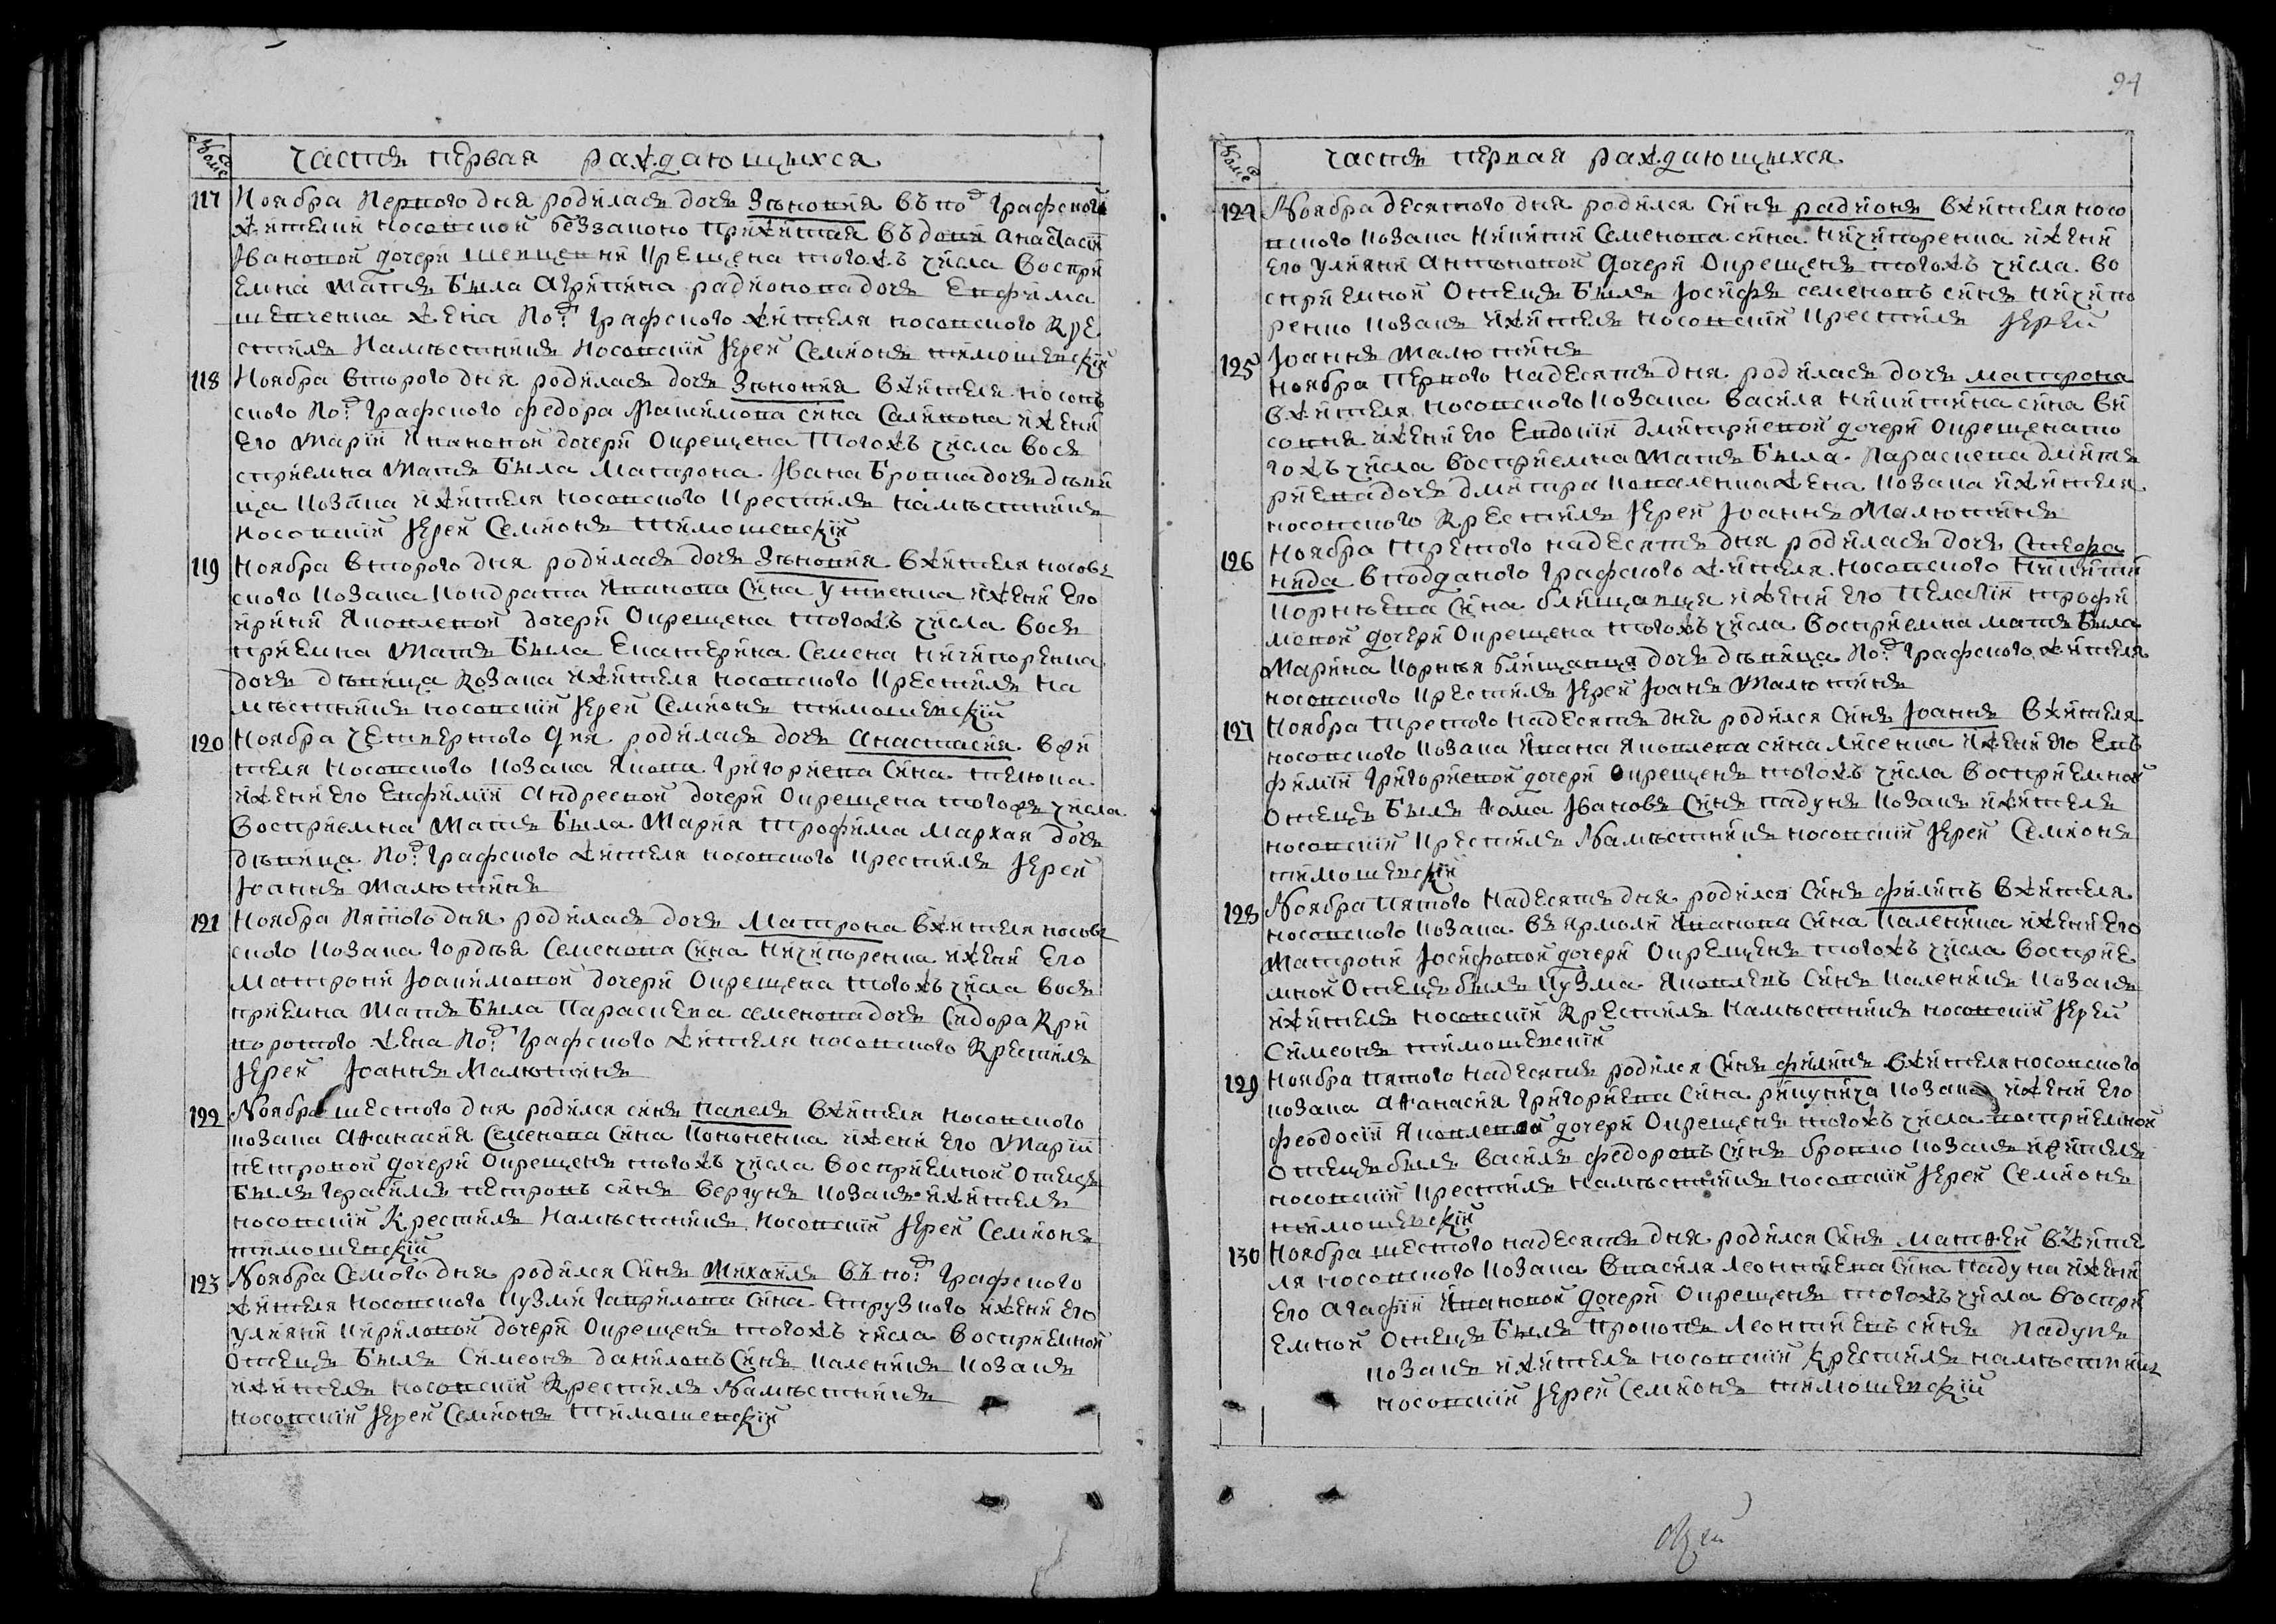 94
часть первая раждающихся
117 Ноября Первого дня родилася дочь Зѣновия въ под графского
жителки носовской беззаконо прижитая въдови анастасїи
Ивановой дочери шевцевни Крещена тогожъ числа воспри
емна Мать была Агрипина радионова дочь Евфима
шевченка жена под графского жителя носовского Кре
стилъ Намѣстникъ Носовский Їерей Семионъ тимошевский
118 Ноября второго дня родилася дочь Зѣновия вжителя носовъ
ского под графского федора Макѣмова сина Саликона ижени
Его Марїи Ивановой дочери Окрещена Тогожъ числа вось
приемна Мать была Матрона Ивана Бровка дочь дѣви
ца козака ижителя носовского Крестилъ намѣстникъ
носовский Їерей Семионъ Тимошевский
119 Ноября второго дня родилася дочь Зѣновия вжителя носовъ
ского козака Кондрата Иванова Сина Утвенка ижени Его
ирини Яковлевой дочери Окрещена тогожъ числа вось
приемна Мать была Екатерина Семена Ничипоренка
дочь дѣвица Козака ижителя носовского Крестилъ На
мѣстникъ носовский Їерей Семионъ тимошевский
120 Ноября четвертого дня родилася дочь Анастасия вжи
теля Носовского козака Якова Григориева Сина
ижени Его Евфимїи Андреевой дочери Окрещена тогожъ числа
восприемна Мать была Мария Трофима Мархая дочь
дѣвица под графского жителя носовского Крестилъ Їерей
Їоаннъ Малютинъ
121 Ноября Пятогъ дня родилася дочь Матрона вжителя носовъ
ского козака Гордѣя Семенова Сина Ничипоренка ижени Его
Матрони Їоакимовой дочери Окрещена тогожъ числа вось
приемна Мать была Параскева семенова дочь Сидора Кри
поротого жена под графского жителя носовского Крестилъ
Їерей Їоаннъ Малютинъ
122 Ноября шестого дня родился синъ Павелъ вжителя носовского
козака Афанасия Семенова Сина Кононенка ижени Его Марїи
петровой дочери Окрещенъ тогожъ числа восприемной Отецъ
былъ Герасимъ петровъ синъ вергунъ козакъ ижителъ
носовский Крестилъ Намѣстникъ Носовский Їерей Семионъ
тимошевский
123 Ноября Семого дня родился Синъ Михаилъ въ под графского
жителя Носовского кузми гаврилова Сина Струзкого ижени Его
улияни кириловой дочери Окрещенъ тогожъ числа восприемной
Отецъ былъ Симеонъ даниловъ Синъ каленикъ козакъ
ижителъ носовский Крестилъ Намѣстникъ
носовский Їерей Семионъ Тимошевский
часть первая раждающихся
124 Ноября десятого дня родился Синъ радионъ вжителя носо
вского козака Никити Семенова сина Ничипоренка ижени
Его улияни Антоновой дочери Окрещенъ тогожъ числа во
сприемной Отецъ былъ Їосифъ семеновъ синъ ничипо
ренко козакъ ижителъ носовский Крестилъ Їерей
Їоаннъ Малютинъ
125 Ноября первого надесять дня родилася дочь матрона
вжителя носовского козака василя никитина сина
ижени Его Евдокїи дмитриевой дочери Окрещена то
гожъ числа восприемна Мать была Параскева дмит
риева дочь дмитра коваленка жена козака ижителя
носовского Крестилъ Їерей Їоаннъ Малютинъ
126 Ноября третого надесять дня родилася дочь Стефа
нида вподданого графского жителя носовского Никити
корнѣева Сина блищавця ижени Его Пелагїи трофи
мовой дочери Окрещена тогожъ числа восприемна мать была
Марина Корнѣя блищавця дочь дѣвица под графского жителя
носовского Крестилъ Їерей Їоанъ Малютинъ
127 Ноября третого надесять дня родился Синъ Їоаннъ вжителя
носовского козака Ивана Яковлева сина Лисенка ижени Его Евъ
фимїи Григориевой дочери Окрещенъ тогожъ числа восприемной
Отецъ былъ Фома Ивановъ Синъ падунъ козакъ ижителъ
носовский Крестилъ Намѣстникъ носовский Їерей Семионъ
тимошевский
128 Ноября пятого надесять дня родился Синъ филипъ вжителя
носовского козака въ ярмоли Иванова Сина каленика ижени Его
Матрони Їосифовой дочери Окрещенъ тогожъ числа восприе
мной Отецъ былъ кузма Яковлевъ Синъ каленикъ козакъ
ижителъ носовский Крестилъ Намѣстникъ носовский Їерей
Симеонъ тимошевский
129 Ноября пятого надесять родился Синъ филипъ вжителя носовского
козака Афанасия Григориева Сина козака ижени Его
феодосїи Яковлевой дочери Окрещенъ тогожъ числа восприемной
Отецъ былъ василъ федоровъ Синъ бровко козакъ ижителъ
носовский Крестилъ Намѣстникъ носовский Їерей Семионъ
тимошевский
130 Ноября шестого надесять дня родился Синъ матфей вжите
ля носовского козака василя леонтиева сина падуна ижени
Его Агафїи Ивановой дочери Окрещенъ тогожъ числа воспри
емной Отецъ былъ прокопъ Леонтиевъ синъ Падунъ
козакъ ижителъ носовский Крестилъ намѣстникъ
носовский Їерей Семионъ тимошевский